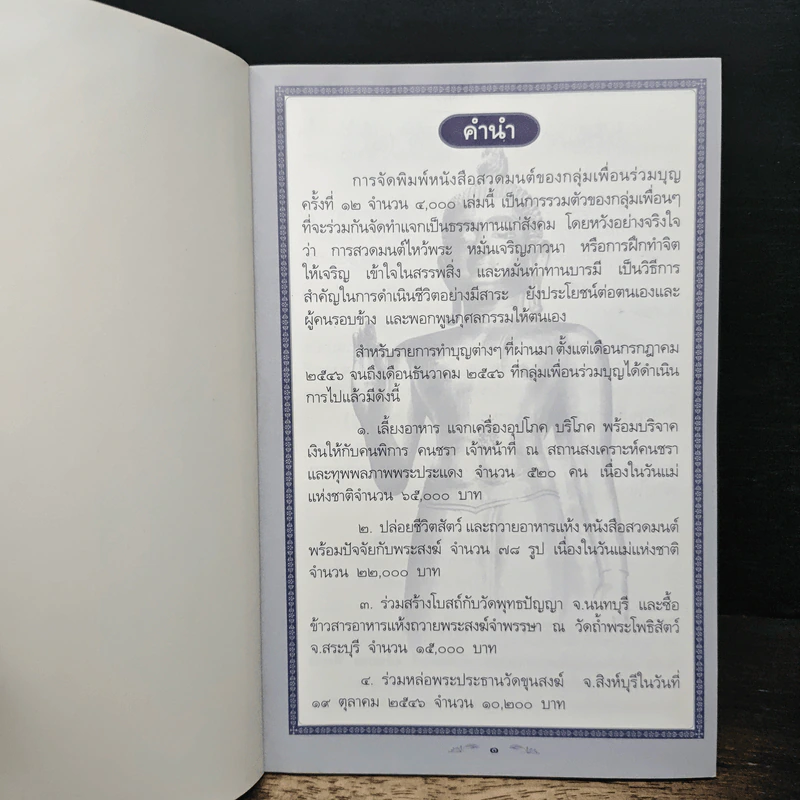 คำนำ
การจัดพิมพ์หนังสือสวดมนต์ของกลุ่มเพื่อนร่วมบุญ
ครั้งที่ ๑๒ จำนวน ๔,๐๐๐ เล่มนี้ เป็นการรวมตัวของกลุ่มเพื่อนๆ
ที่จะร่วมกันจัดทำแจกเป็นธรรมทานแก่สังคม โดยหวังอย่างจริงใจ
ว่า การสวดมนต์ไหว้พระ หมั่นเจริญภาวนา หรือการฝึกทำจิต
ให้เจริญ เข้าใจในสรรพสิ่ง และหมั่นทำทานบารมี เป็นวิธีการ
สำคัญในการดำเนินชีวิตอย่างมีสาระ ยังประโยชน์ต่อตนเองและ
ผู้คนรอบข้าง และพอกพูนกุศลกรรมให้ตนเอง
สำหรับรายการทำบุญต่างๆ ที่ผ่านมา ตั้งแต่เดือนกรกฎาคม
๒๕๔๖ จนถึงเดือนธันวาคม ๒๕๔๖ ที่กลุ่มเพื่อนร่วมบุญได้ดำเนิน
การไปแล้วมีดังนี้
๑. เลี้ยงอาหาร แจกเครื่องอุปโภค บริโภค พร้อมบริจาค
เงินให้กับคนพิการ คนชรา เจ้าหน้าที่ ณ สถานสงเคราะห์คนชรา
และทุพพลภาพพระประแดง จำนวน ๕๒๐ คน เนื่องในวันแม่
แห่งชาติจำนวน ๖๕,๐๐๐ บาท
๒. ปล่อยชีวิตสัตว์ และถวายอาหารแห้ง หนังสือสวดมนต์
พร้อมปัจจัยกับพระสงฆ์ จำนวน ๗๘ รูป เนื่องในวันแม่แห่งชาติ
จำนวน ๒๒,๐๐๐ บาท
๓. ร่วมสร้างโบสถ์กับวัดพุทธปัญญา จ.นนทบุรี และซื้อ
ข้าวสารอาหารแห้งถวายพระสงฆ์จำพรรษา ณ วัดถ้ำพระโพธิสัตว์
จ.สระบุรี จำนวน ๑๕,๐๐๐ บาท
๔. ร่วมหล่อพระประธานวัดขุนสงฆ์ จ.สิงห์บุรีในวันที่
๑๙ ตุลาคม ๒๕๔๖ จำนวน ๑๐,๒๐๐ บาท
๑